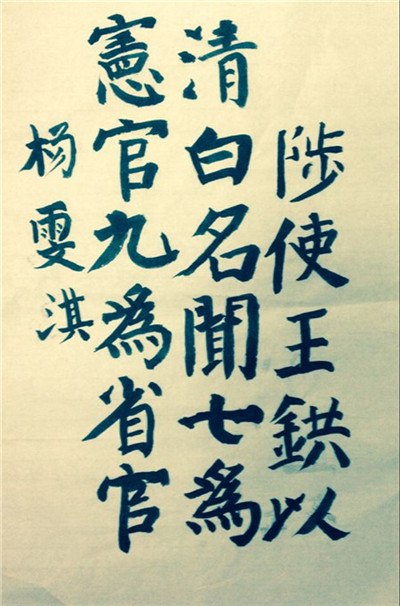 陟使王鉷以
清白名聞七為
憲官九為省官
杨雯淇